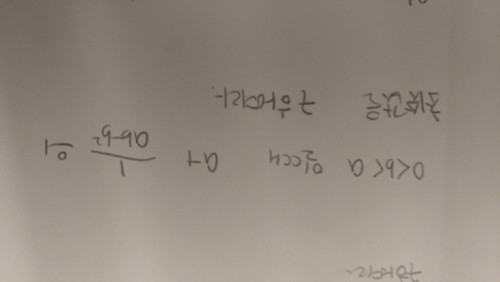 구하여라.
0<b<a 일때 a+ 1/(ab-b²) 의
최솟값을 구하여라.